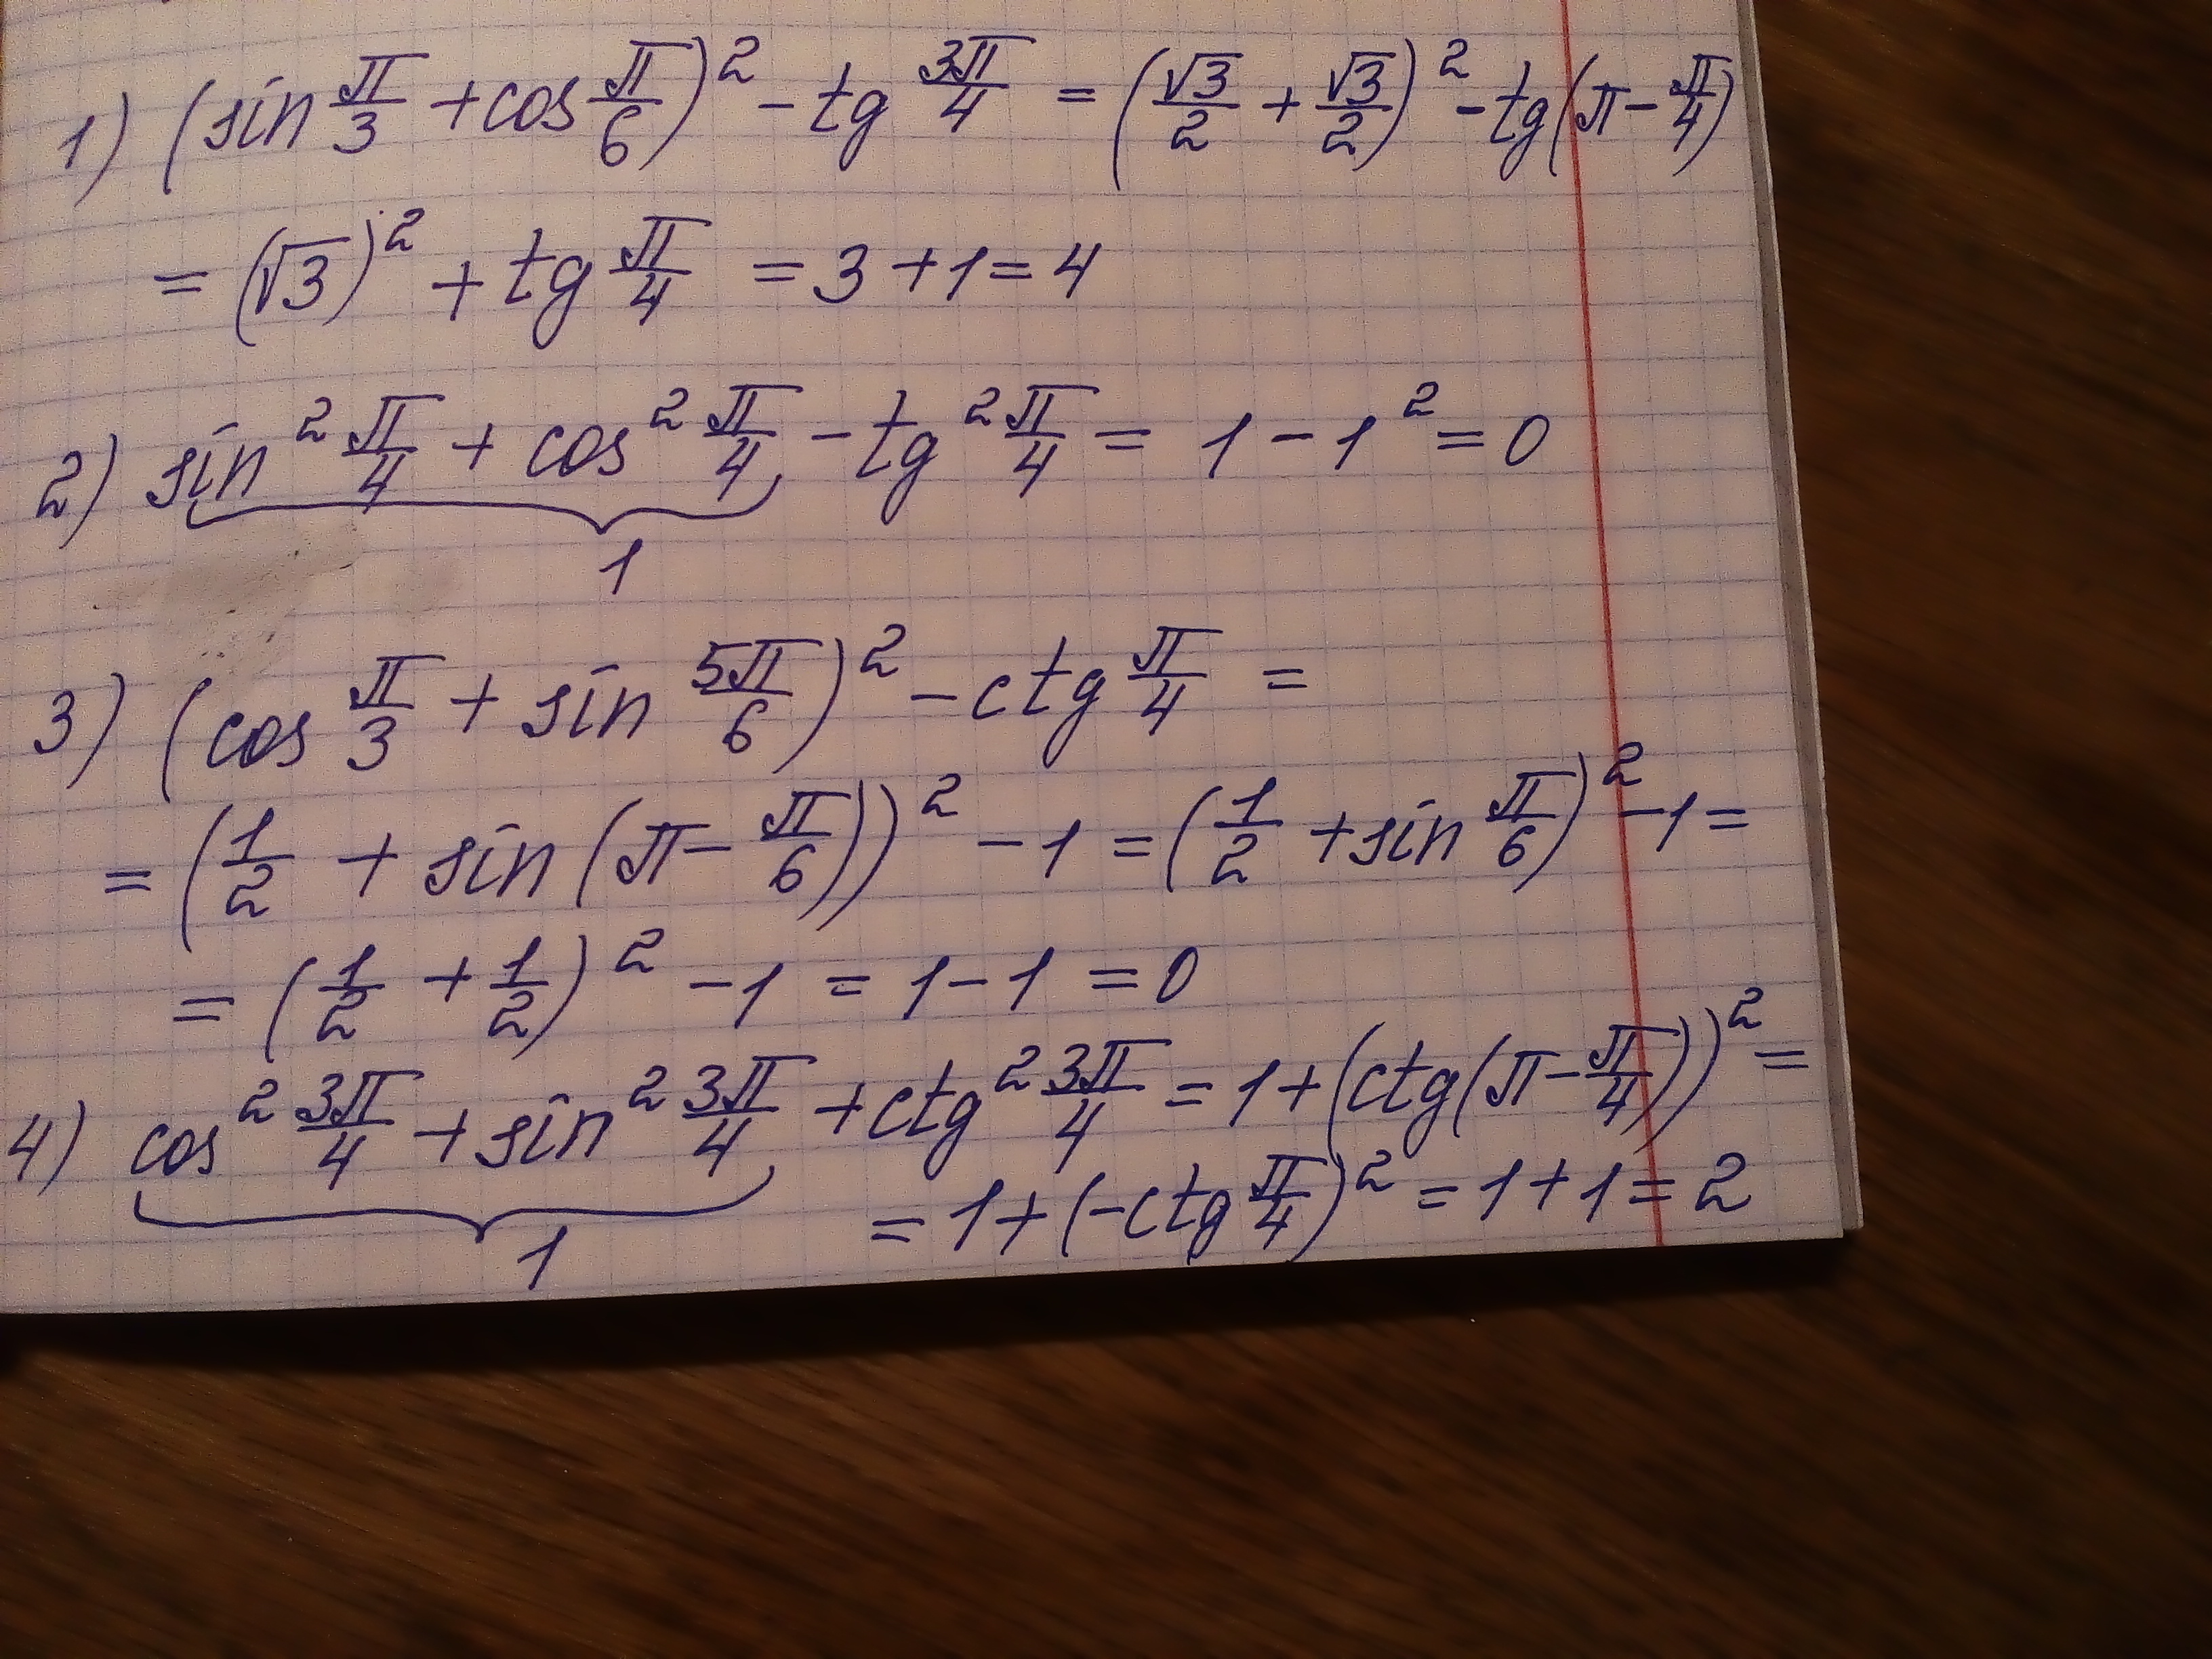 1) (sin π/3 + cos π/6)² - tg 3π/4 = (√3/2 + √3/2)² - tg(π - π/4)
= (√3)² + tg π/4 = 3 + 1 = 4
2) sin² π/4 + cos² π/4 - tg² π/4 = 1 - 1² = 0
1
3) (cos π/3 + sin 5π/6)² - ctg π/4 =
= (1/2 + sin(π - π/6))² - 1 = (1/2 + sin π/6)² - 1 =
= (1/2 + 1/2)² - 1 = 1 - 1 = 0
4) cos² 3π/4 + sin² 3π/4 + ctg² 3π/4 = 1 + (ctg(π - π/4))² =
1
= 1 + (-ctg π/4)² = 1 + 1 = 2